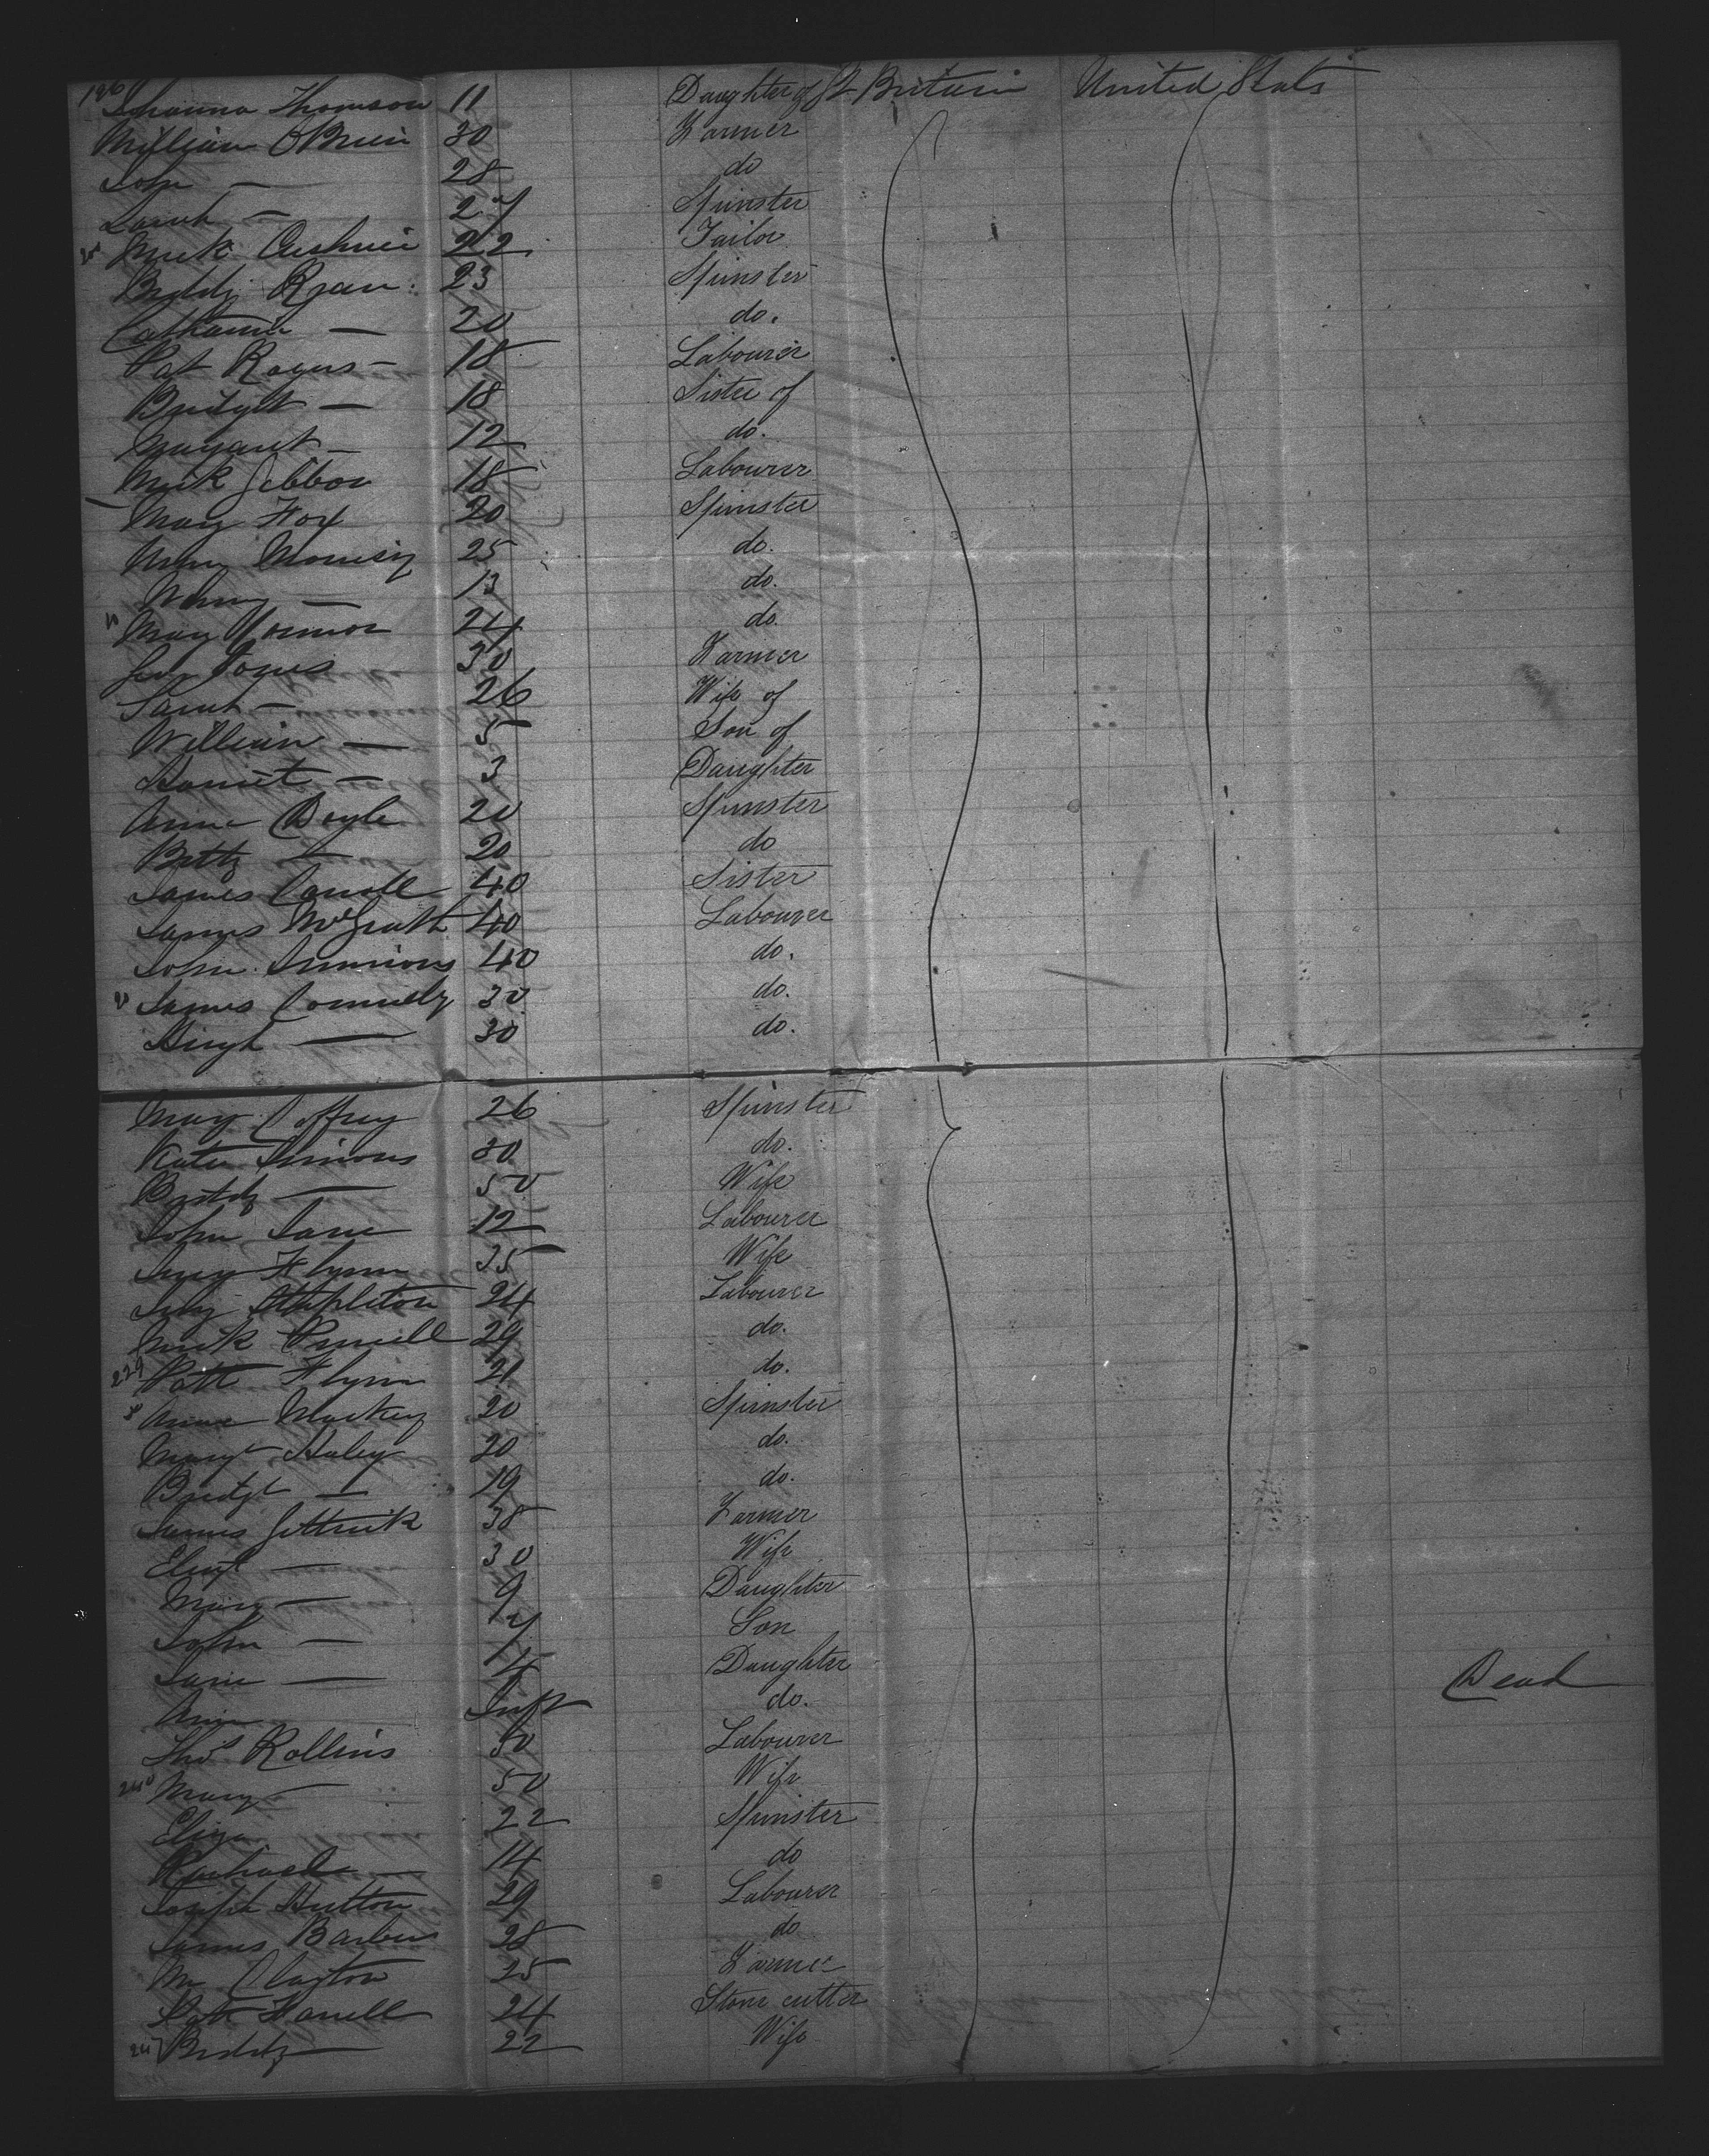 196 Johanna Thomson 11 Daughter of Gt Britain United Stats
William OBrien 30 Farmer
John — 28 do
Sarah — 27 Spinster
Mick 22 Tailor
Biddy Ryan 23 Spinster
Catharine — 20 do.
Pat Rogers — 18 Labourer
Bridget — 18 Sister of
Margaret — 12 do.
Mick Gibbon 18 Labourer
Mary Fox 20 Spinster
Morrisy 25 do.
— 13 do.
Mary Connor 24 do.
30 Farmer
Sarah — 26 Wife of
William — 5 Son of
Harriet — 3 Daughter
Anne Doyle 20 Spinster
Betty — 20 do
James Carroll 40 Sister
James McGrath 40 Labourer
John Simmons 40 do.
James Connelly 30 do.
Hugh — 30 do.
Mary Caffrey 26 Spinster
Kate Simons 30 do.
Biddy — 50 Wife
John Lane 12 Labourer
Flynn 35 Wife
Stapleton 24 Labourer
Mick Purcell 29 do.
229 Patt Flynn 21 do.
Anne Mackey 20 Spinster
Margt Haley 20 do.
Bridgt — 19 do.
James Gettrick 38 Farmer
— 30 Wife
Mary — 9 Daughter
John — 7 Son
Jane — 4 Daughter
Ann Inft do. Dead
Thos Rollins 50 Labourer
240 Mary — 50 Wife
Eliza 22 Spinster
Rachael — 14 do
Joseph Hutton 29 Labourer
James Barber 28 do
Clayton 25 Farmer
Patt Farrell 24 Stone cutter
247 Biddy — 22 Wife